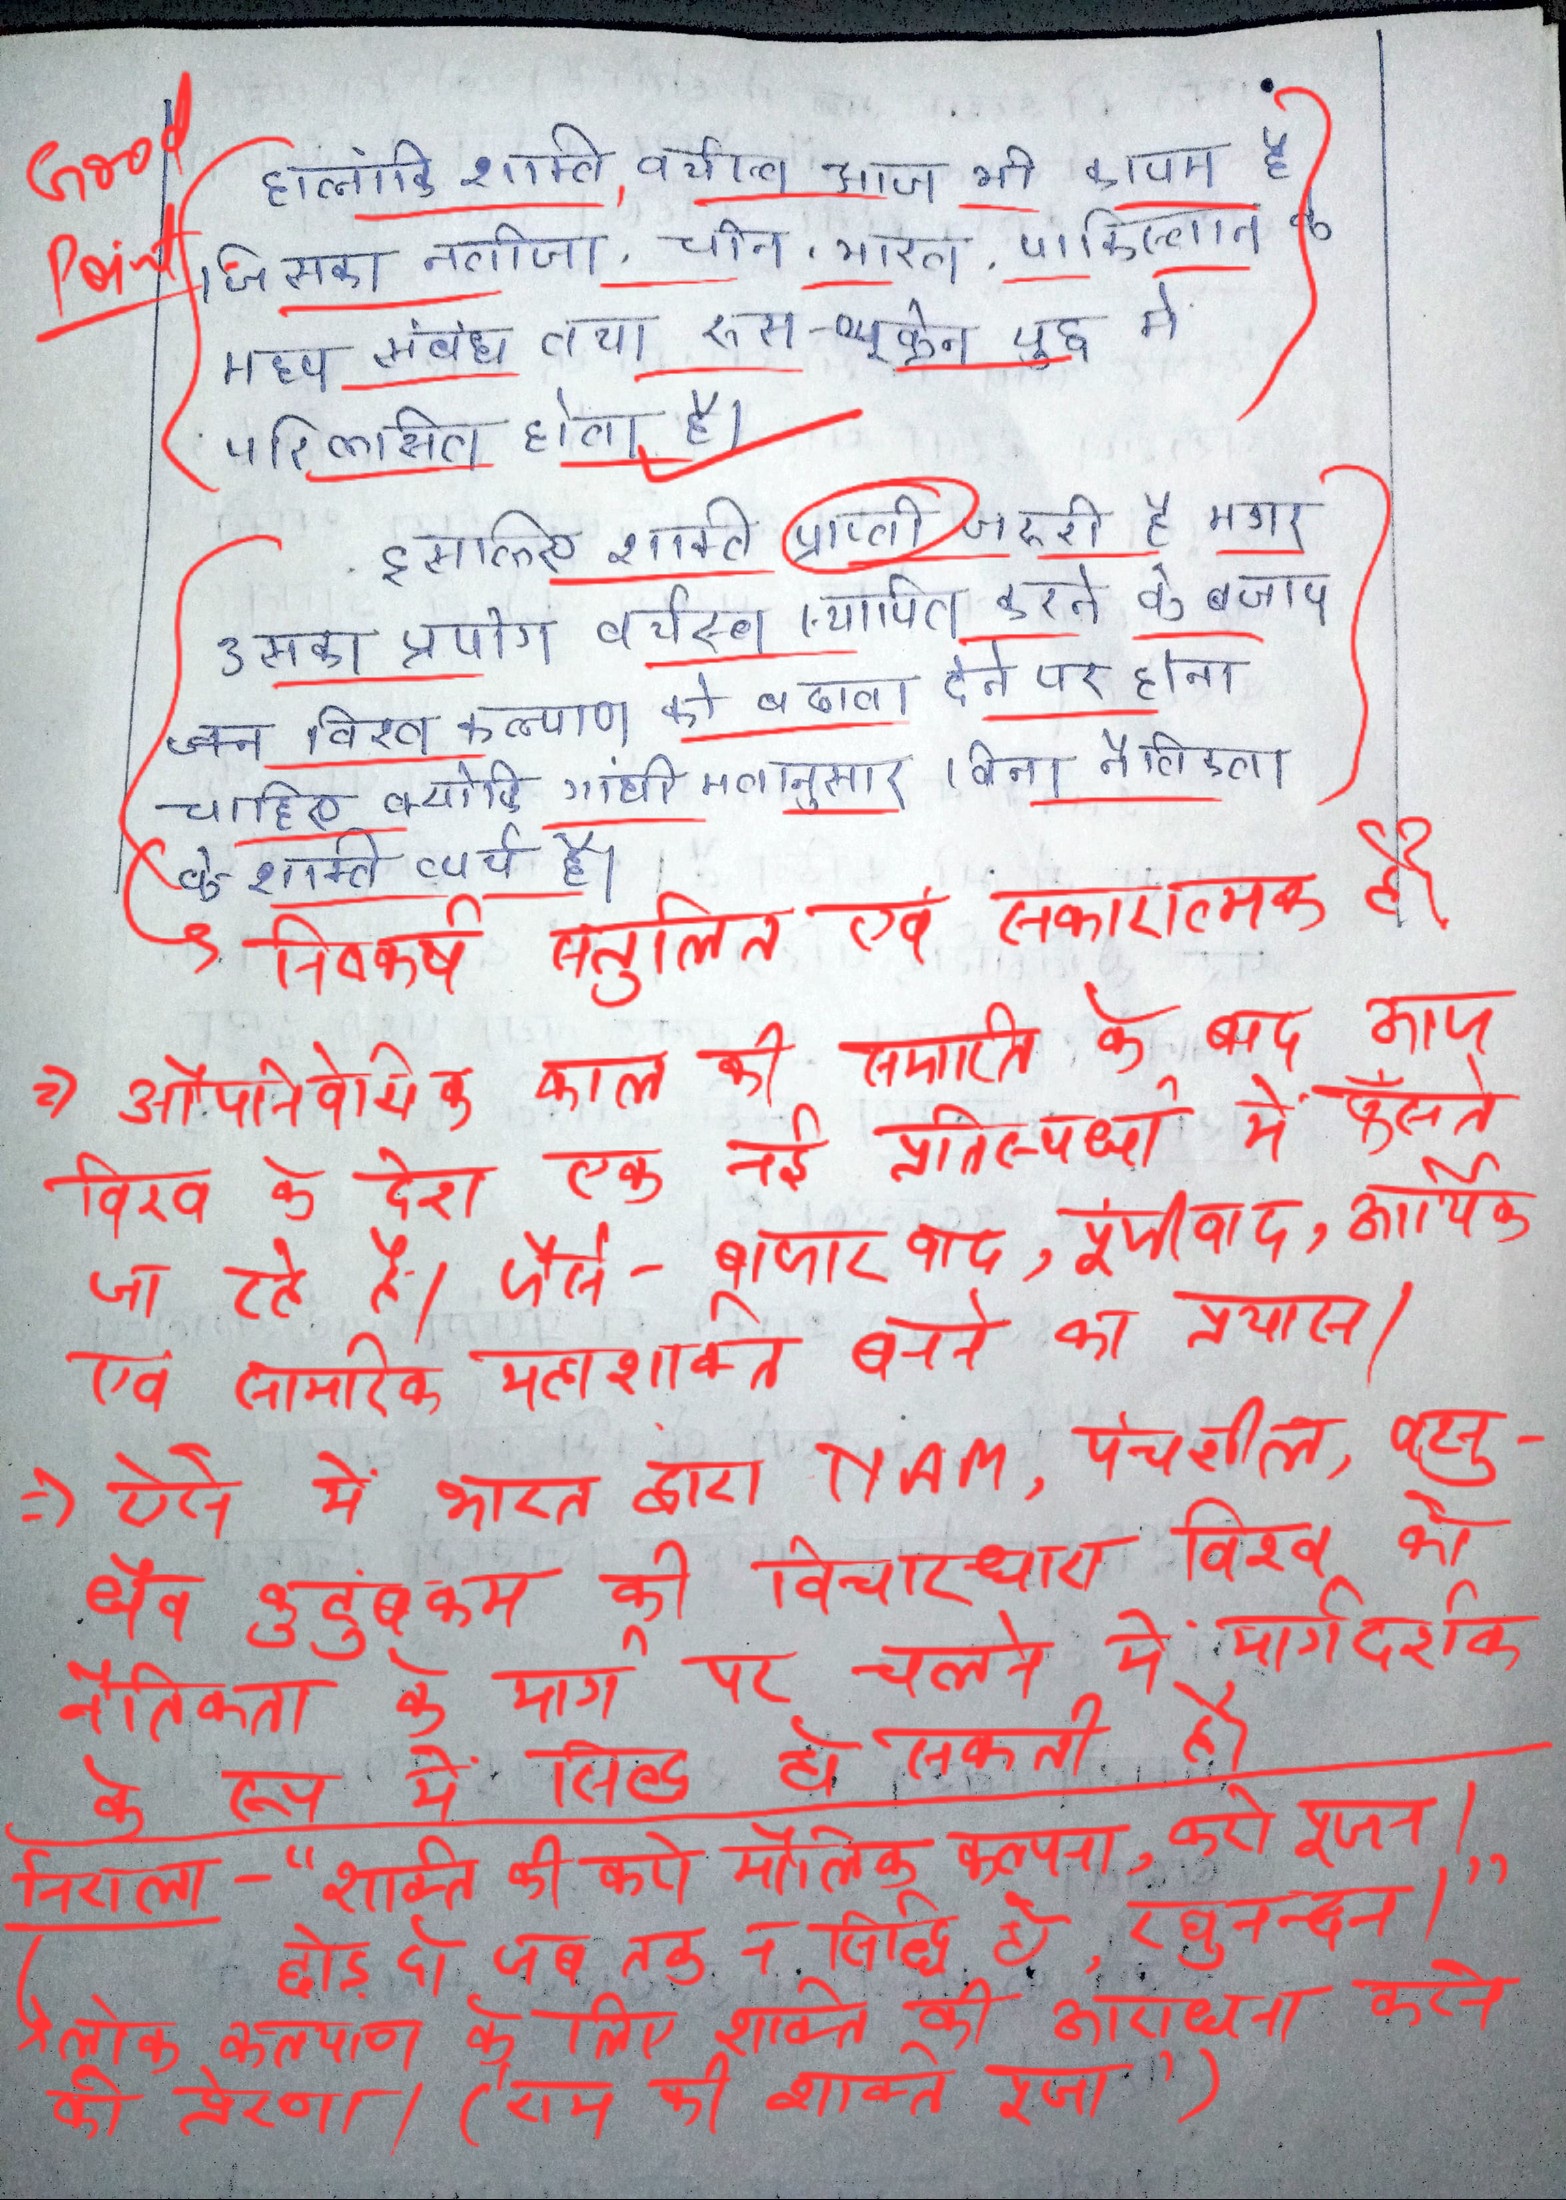 Good
Point
हालांकि शक्ति, वर्चस्व आज भी कायम है
जिसका नतीजा, चीन, भारत, पाकिस्तान के
मध्य संबंध तथा रूस-यूक्रेन युद्ध में
परिलक्षित होता है।
इसलिए शक्ति प्राप्ती जरूरी है मगर
उसका प्रयोग वर्चस्व स्थापित करने के बजाय
जन विश्व कल्याण को बढावा देने पर होना
चाहिए क्योंकि गांधी मतानुसार बिना नैतिकता
के शक्ति व्यर्थ है।
निष्कर्ष सतुलित एवं सकारात्मक है।
⇒ औपनिवेशिक काल की समाप्ति के बाद आज
विश्व के देश एक नई प्रतिस्पर्धा में फँसते
जा रहे हैं। जैसे - बाजारवाद, पूंजीवाद, आर्थिक
एवं सामरिक महाशक्ति बनने का प्रयास।
⇒ ऐसे में भारत द्वारा NAM, पंचशील, वसु-
धैव कुटुंबकम की विचारधारा विश्व को
नैतिकता के मार्ग पर चलने में मार्गदर्शक
के रूप में सिद्ध हो सकती है।
निराला - "शक्ति की करो मौलिक कल्पना, करो पूजन।
छोड़ दो जब तक न सिद्धि हो, रघुनन्दन।"
लोक कल्याण के लिए शक्ति की आराधना करने
की प्रेरणा। (राम की शक्ति पूजा")